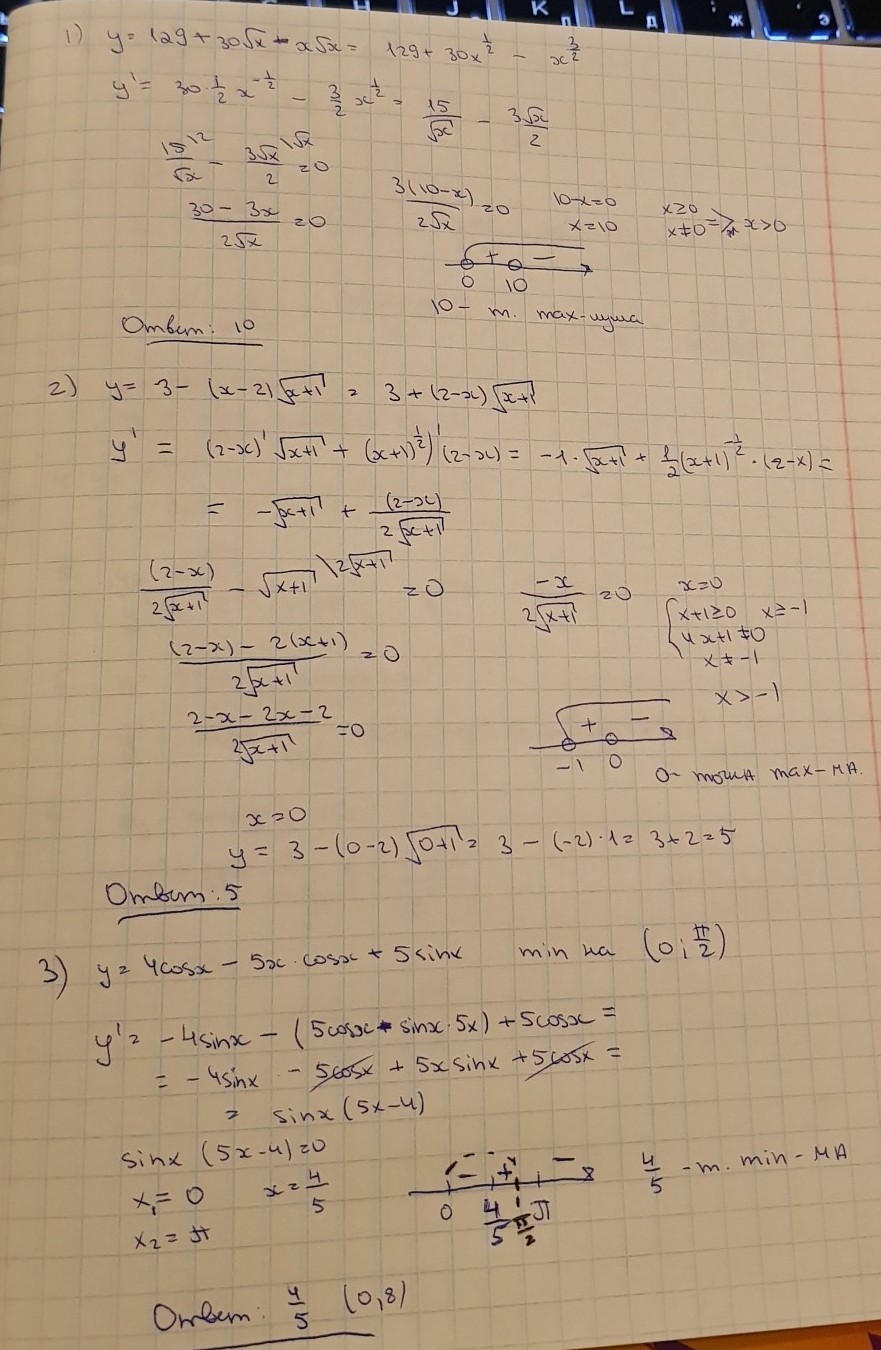 1) y = 129 + 30√x - x√x = 129 + 30x^(1/2) - x^(3/2)
y' = 30·1/2 x^(-1/2) - 3/2 x^(1/2) = 15/√x - 3√x/2
15/√x \2 - 3√x/2 \√x = 0
30 - 3x / 2√x = 0
3(10-x) / 2√x = 0
10-x=0
x=10
x≥0
x≠0 => x>0
+ -
0 10
10 - т. max-мума
Ответ: 10
2) y = 3 - (x-2)√(x+1) = 3 + (2-x)√(x+1)
y' = (2-x)' √(x+1) + (x+1)^(1/2))' (2-x) = -1·√(x+1) + 1/2 (x+1)^(-1/2) · (2-x) =
= -√(x+1) + (2-x) / 2√(x+1)
(2-x) / 2√(x+1) - √(x+1) \2√(x+1) = 0
(2-x) - 2(x+1) / 2√(x+1) = 0
2-x-2x-2 / 2√(x+1) = 0
-x / 2√(x+1) = 0
x=0
x+1≥0 x≥-1
x+1≠0
x≠-1
x>-1
+ -
-1 0
0 - точка max-МА.
x=0
y = 3 - (0-2)√(0+1) = 3 - (-2)·1 = 3+2=5
Ответ: 5
3) y = 4cosx - 5x·cosx + 5sinx min на (0; π/2)
y' = -4sinx - (5cosx - sinx·5x) + 5cosx =
= -4sinx - 5cosx + 5x sinx + 5cosx =
= sinx (5x-4)
sinx (5x-4)=0
x₁ = 0 x = 4/5
x₂ = π
- + -
0 4/5 π/2 π
4/5 - т. min-МА
Ответ: 4/5 (0,8)